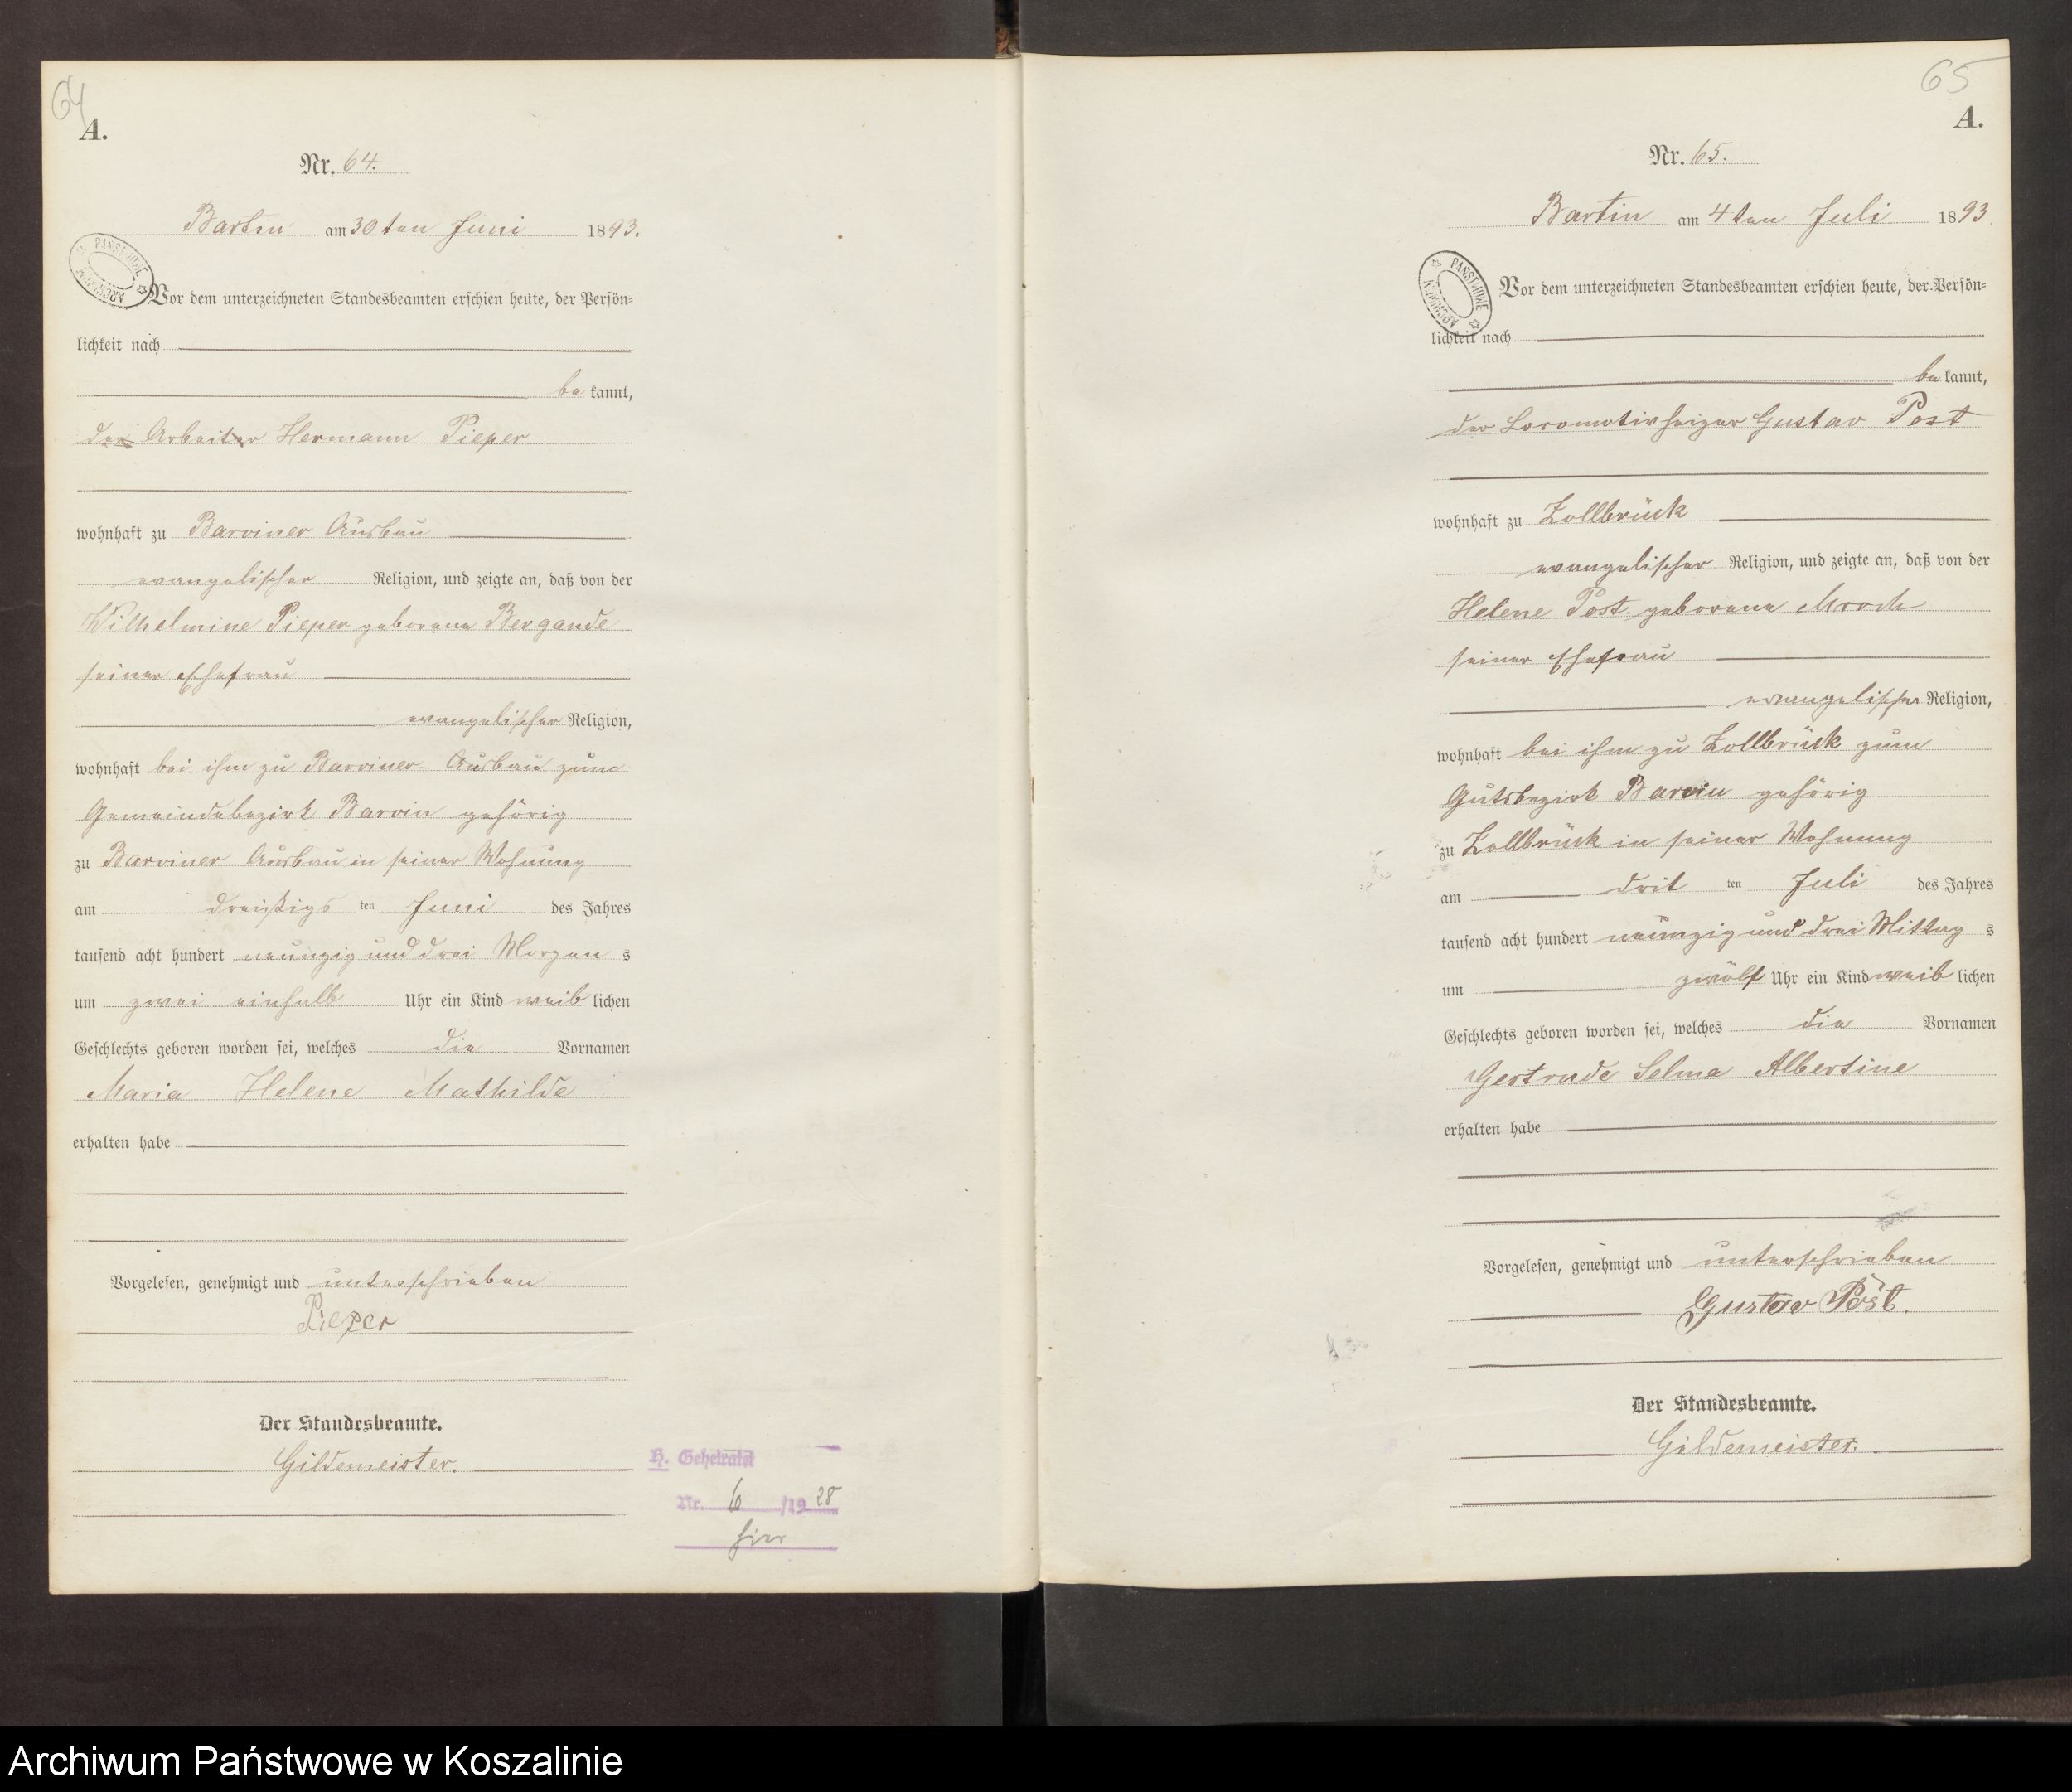 64
A.
Nr. 64.
Bartin am 30ten Juni 1893.
Vor dem unterzeichneten Standesbeamten erschien heute, der Persön-
lichkeit nach
be kannt,
der Arbeiter Hermann Pieper
wohnhaft zu Barviner Ausbau
evangelischer Religion, und zeigte an, daß von der
Wilhelmine Pieper geborene Bergande
seiner Ehefrau
evangelischer Religion,
wohnhaft bei ihm zu Barviner Ausbau zum
Gemeindebezirk Barvin gehörig
zu Barviner Ausbau in seiner Wohnung
am dreißigs ten Juni des Jahres
tausend acht hundert neunzig und drei Morgen s
um zwei einhalb Uhr ein Kind weib lichen
Geschlechts geboren worden sei, welches die Vornamen
Maria Helene Mathilde
erhalten habe
Vorgelesen, genehmigt und unterschrieben
Pieper
Der Standesbeamte.
Gildemeister.
H. Geheiratet
Nr. 6 /19 28
hier
65
A.
Nr. 65.
Bartin am 4ten Juli 1893.
PANSTWOWE ARCHIWUM
Vor dem unterzeichneten Standesbeamten erschien heute, der Persön-
lichkeit nach
be kannt,
der Locomotivheizer Gustav Post
wohnhaft zu Zollbrück
evangelischer Religion, und zeigte an, daß von der
Helene Post geborene Mroch
seiner Ehefrau
evangelischer Religion,
wohnhaft bei ihm zu Zollbrück zum
Gutsbezirk Barvin gehörig
zu Zollbrück in seiner Wohnung
am drit ten Juli des Jahres
tausend acht hundert neunzig und drei Mittag s
um zwölf Uhr ein Kind weib lichen
Geschlechts geboren worden sei, welches die Vornamen
Gertrude Selma Albertine
erhalten habe
Vorgelesen, genehmigt und unterschrieben
Gustav Post.
Der Standesbeamte.
Gildemeister.
Archiwum Państwowe w Koszalinie